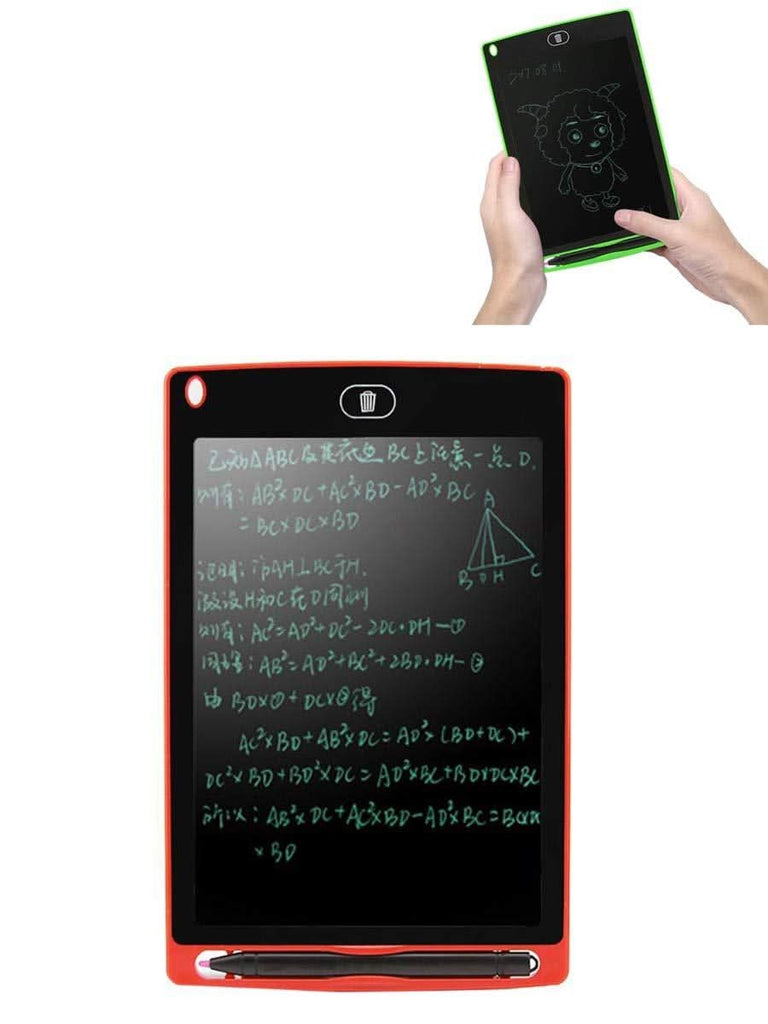 已知△ABC及其底边BC上任意一点D.
则有: AB²×DC+AC²×BD-AD²×BC
= BC×DC×BD
A
B D H C
证明: 作AH⊥BC于H.
假设H和C在D同侧
则有: AC²=AD²+DC²-2DC·DH-①
同理: AB²=AD²+BC²+2BD·DH-②
由 BD×①+DC×②得
AC²×BD+AB²×DC=AD²×(BD+DC)+
DC²×BD+BD²×DC=AD²×BC+BD×DC×BC
所以: AB²×DC+AC²×BD-AD²×BC=BC×
×BD